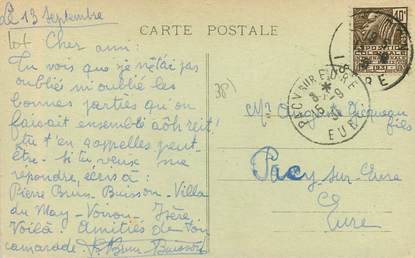 Le 13 Septembre
CARTE POSTALE
Cher ami :
Tu vois que je n'étai pas
oublié ni oublié les
bonnes parties qu'on
faisait ensembli
tu t'en rappelles peut-
être. Si tu veux me
repondre, écris à :
Pierre Brun-Buisson - Villa
du May - Voiron - Isère
Voilà. Amitiés de ton
camarade P. Brun Buisson
PACY SUR EURE
EURE
fils
Pacy-sur-Eure
Eure